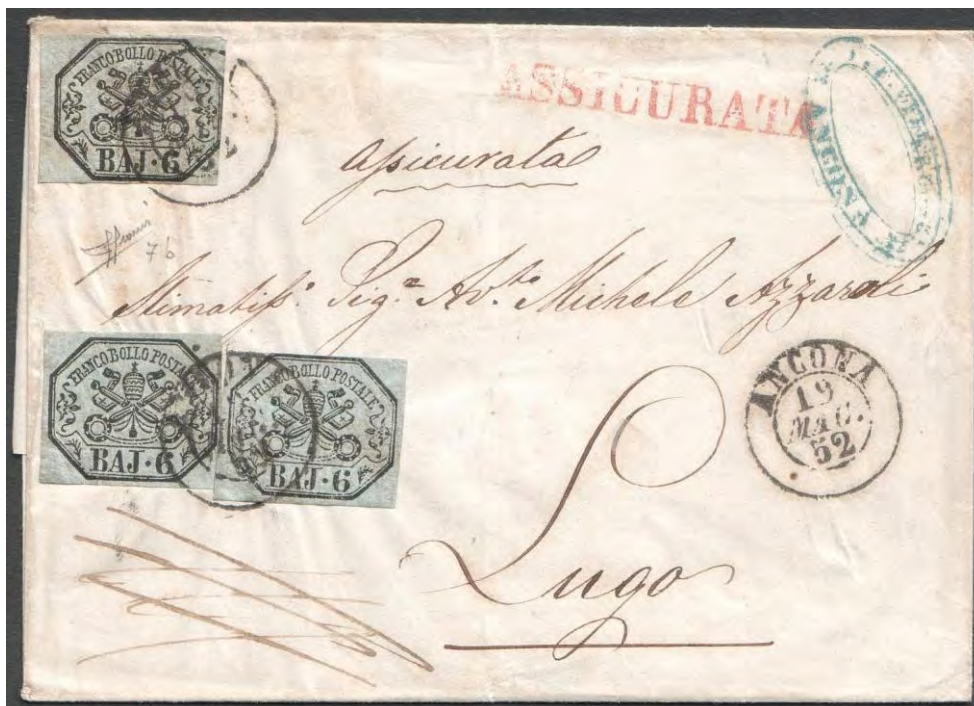 FRANCO BOLLO POSTALE
BAJ·6
ASSICURATA
ANCONA
assicurata
7 b
Stimatiss.º Sig.r Av.to Michele Azzaroli
FRANCO BOLLO POSTALE
BAJ·6
FRANCO BOLLO POSTALE
BAJ·6
ANCONA
19
MAG.
52
Lugo